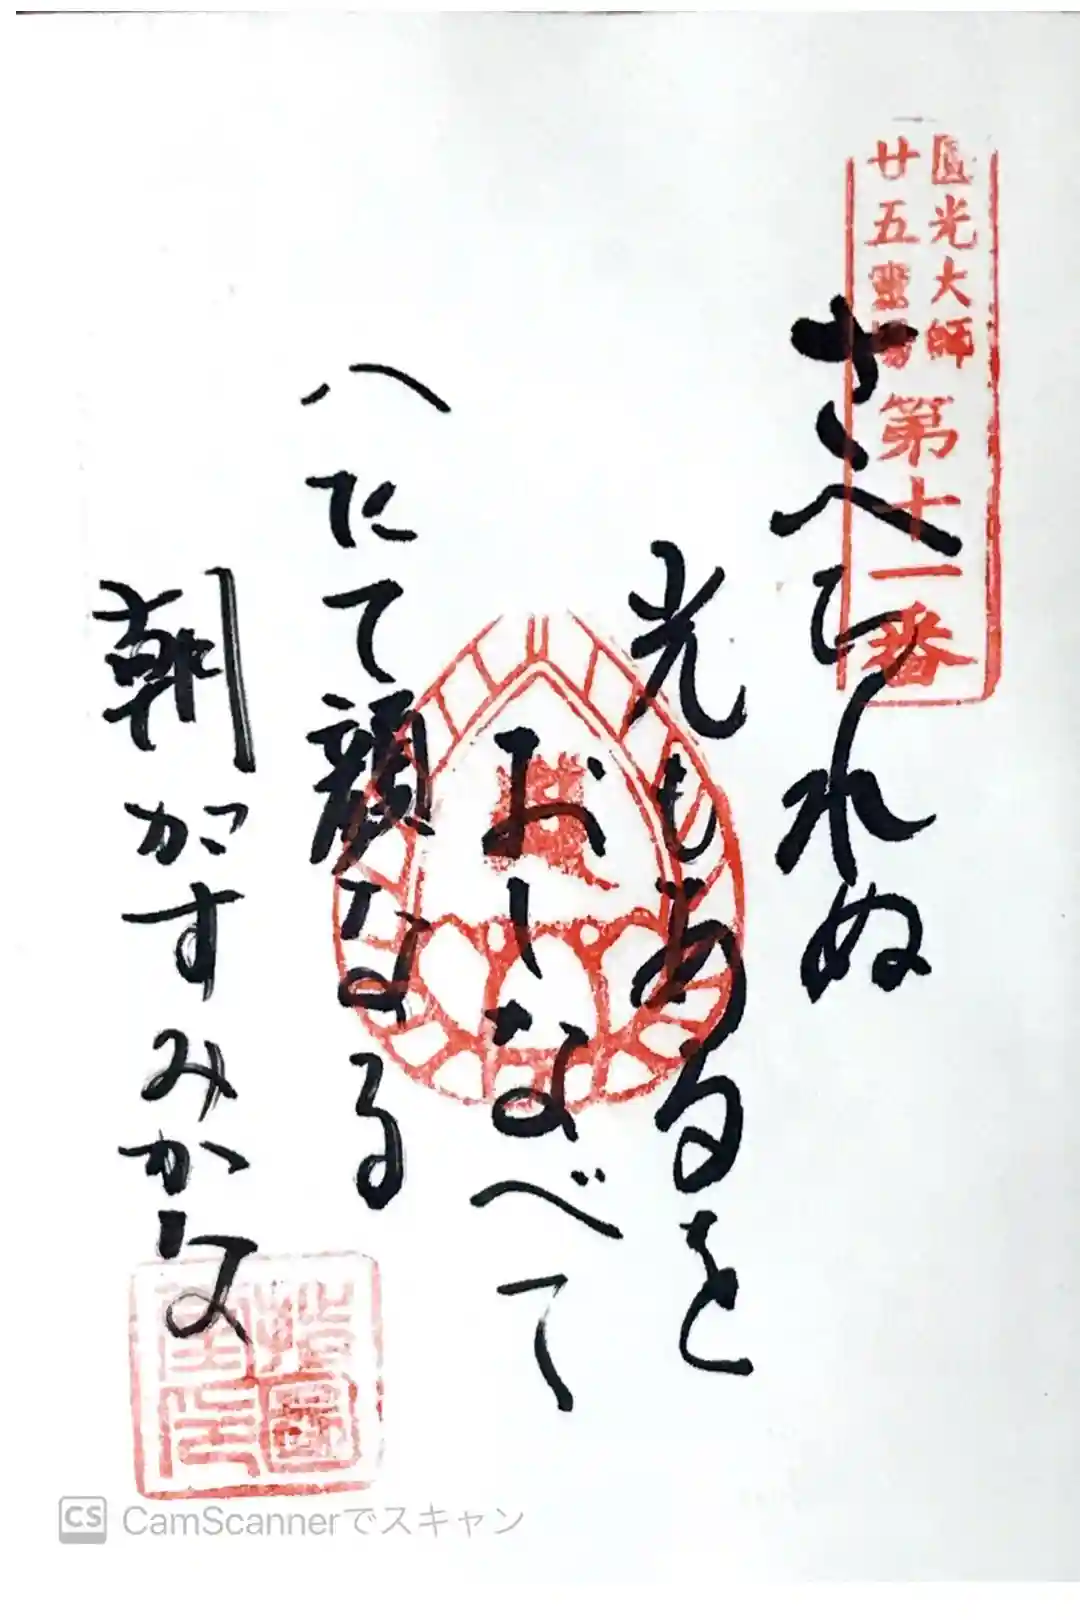 圓光大師
廿五霊場
第十一番
さへられぬ
光もあるを
おしなべて
へだて顔なる
朝がすみかな
CS CamScannerでスキャン